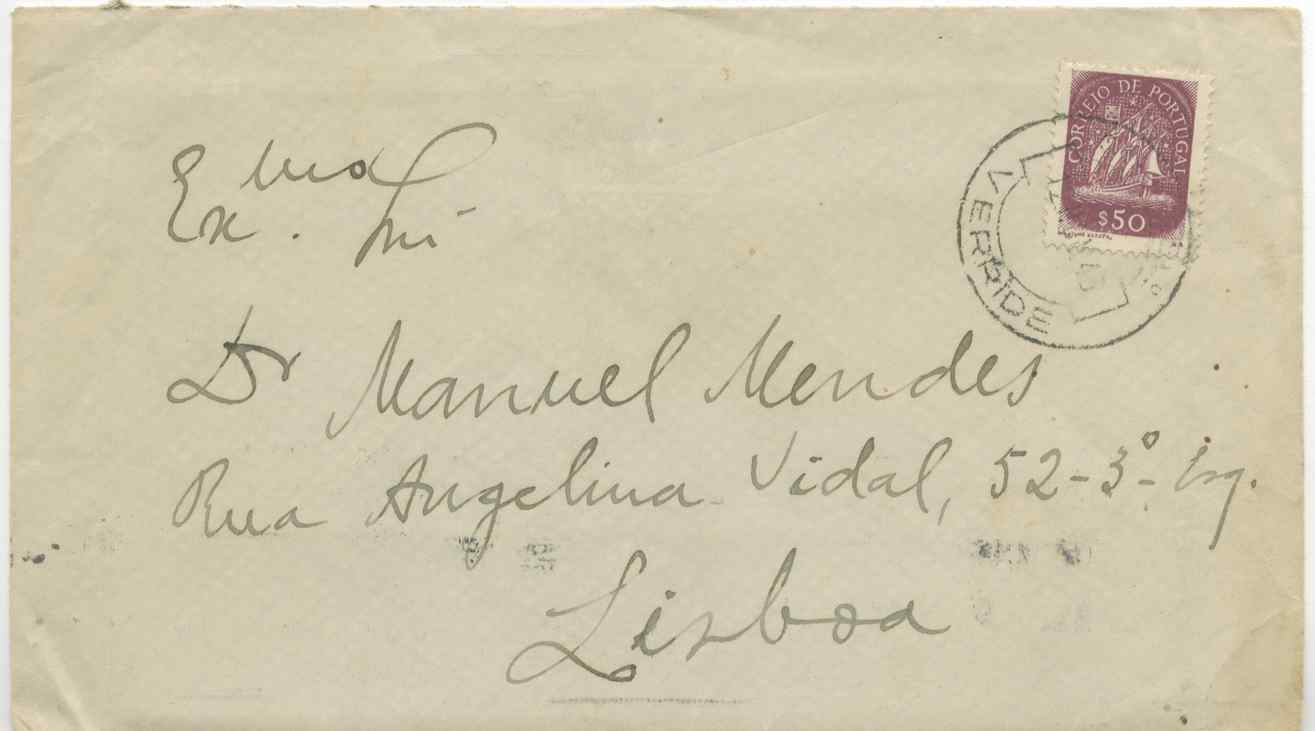 Ex.mo Snr
Dr Manuel Mendes
Rua Angelina Vidal, 52-3º- Esq.
Lisboa
CORREIO DE PORTUGAL
$50
VERRIDE